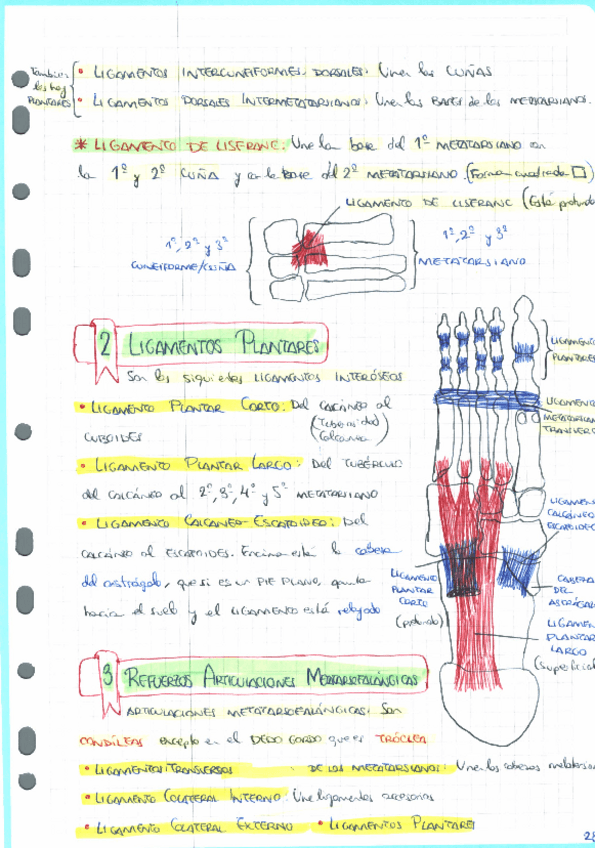 También
los hay
PLANTARES
• LIGAMENTOS INTERCUNEIFORMES DORSALES: Unen las CUÑAS
• LIGAMENTOS DORSALES INTERMETATARSIANOS: Unen las BASES de los METATARSIANOS.
* LIGAMENTO DE LISFRANC: Une la base del 1º METATARSIANO con
la 1º y 2º CUÑA y con la base del 2º METATARSIANO. (Forma cuadrada □)
LIGAMENTO DE LISFRANC (Está profundo
1º, 2º y 3º
CUNEIFORME/CUÑA
1º, 2º y 3º
METATARSIANO
2 LIGAMENTOS PLANTARES
Son los siguientes LIGAMENTOS INTERÓSEOS
• LIGAMENTO PLANTAR CORTO: Del CALCÁNEO al
(Tuberosidad
Calcánea)
CUBOIDES
• LIGAMENTO PLANTAR LARGO: DEL TUBÉRCULO
del CALCÁNEO al 2º, 3º, 4º y 5º METATARSIANO
• LIGAMENTO CALCÁNEO-ESCAFOIDEO: Del
CALCÁNEO al ESCAFOIDES. Encima está la cabeza
del astrágalo, que si es un PIE PLANO, apunta
hacia el suelo y el LIGAMENTO está relajado
LIGAMENTO
PLANTARES
LIGAMENTO
METATARSIANO
TRANSVERSO
LIGAMENTO
CALCÁNEO
ESCAFOIDEO
LIGAMENTO
PLANTAR
CORTO
(profundo)
CABEZA
DEL
ASTRÁGALO
LIGAMENTO
PLANTAR
LARGO
(superficial
3 REFUERZOS ARTICULACIONES METATARSOFALÁNGICAS
ARTICULACIONES METATARSOFALÁNGICAS: Son
CONDÍLEAS excepto en el DEDO GORDO que es TRÓCLEA
• LIGAMENTOS TRANSVERSOS DE LOS METATARSIANOS: Une las cabezas
• LIGAMENTO COLATERAL INTERNO: Une ligamentos accesorios
• LIGAMENTO COLATERAL EXTERNO • LIGAMENTOS PLANTARES